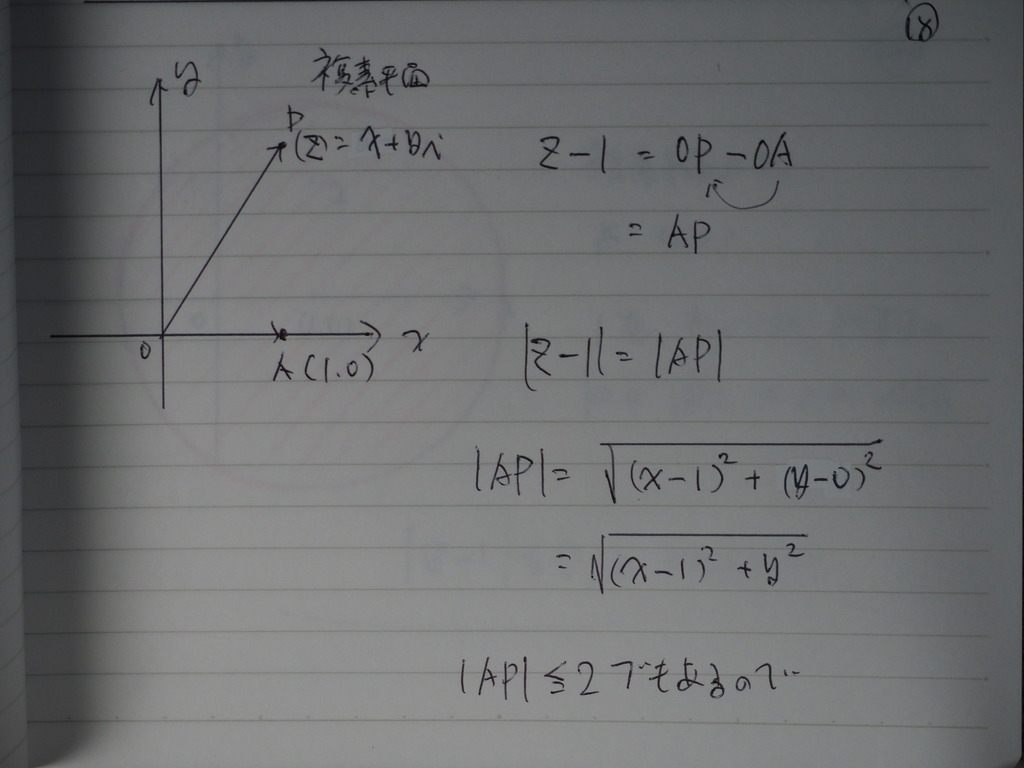 ⑱
y
複素平面
P
(z) = x + yi
0
A (1.0)
x
z - 1 = OP - OA
= AP
|z - 1| = |AP|
|AP| = √(x-1)² + (y-0)²
= √(x-1)² + y²
|AP| ≦ 2 でもあるので